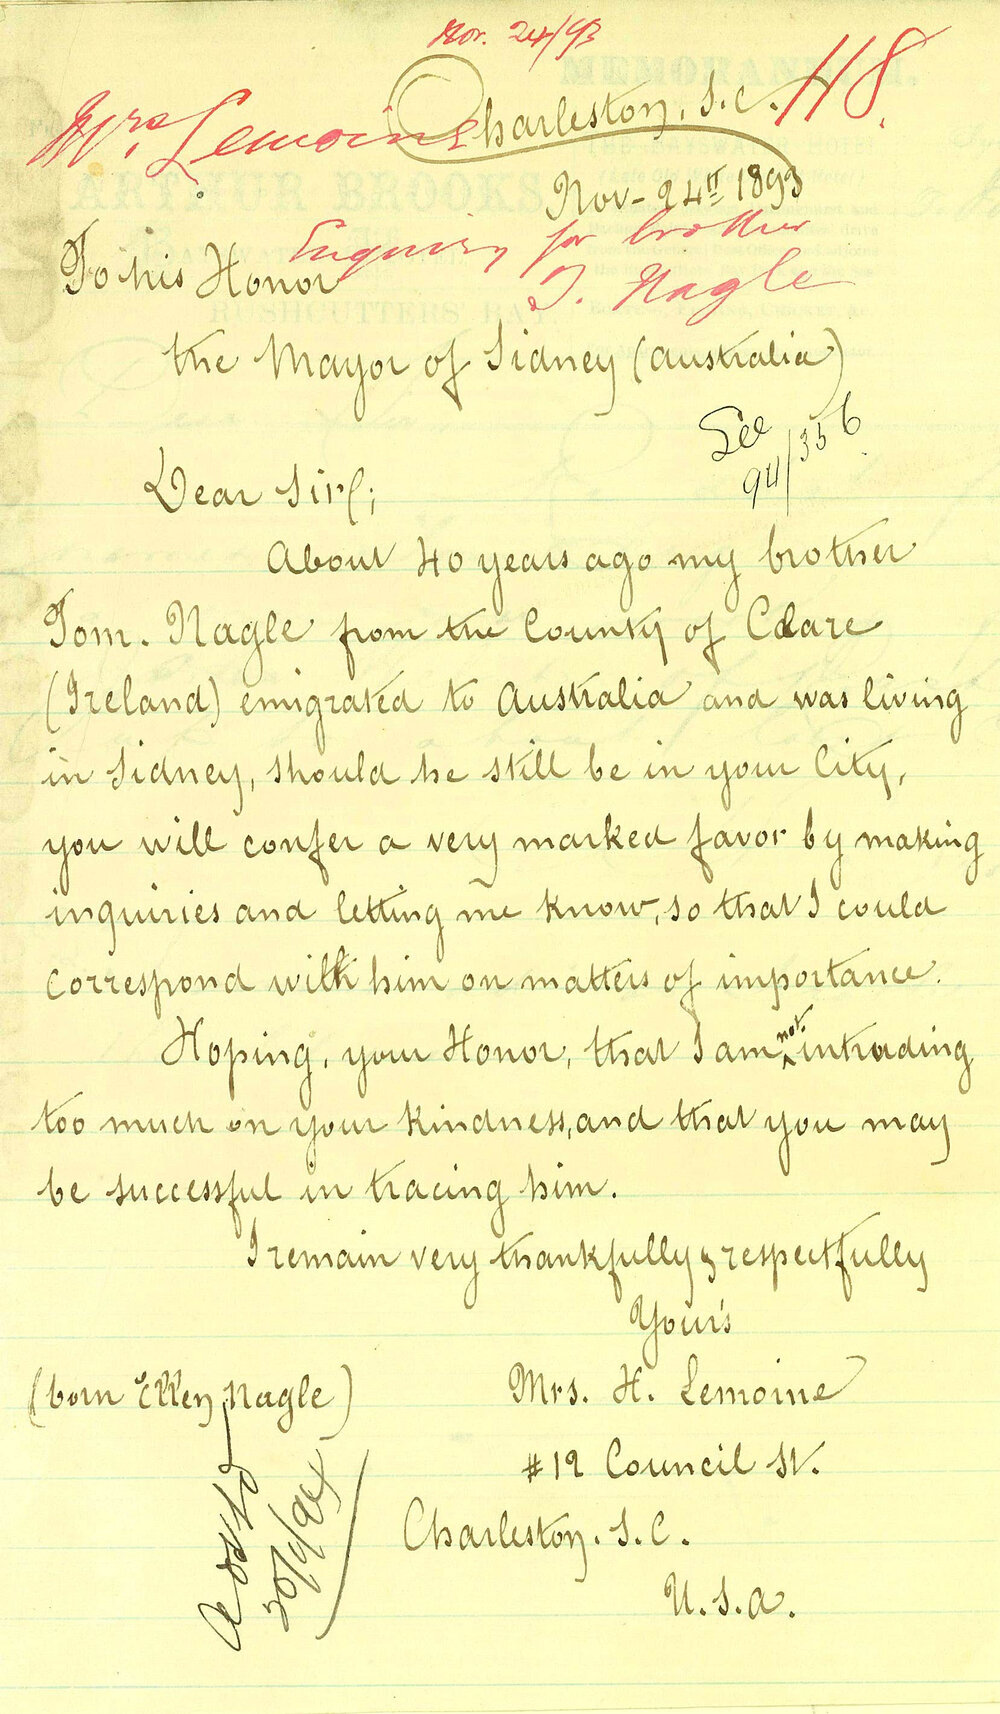 Nov. 24/93
Mrs. Lemoine
H8.
Charleston, S.C.
Nov- 24th 1893
Enquiry for brother
T. Nagle
To his Honor
the Mayor of Sidney (Australia)
See
94/356
Dear Sir;
About 40 years ago my brother
Tom. Nagle from the County of Clare
(Ireland) emigrated to Australia and was living
in Sidney, should he still be in your City,
you will confer a very marked favor by making
inquiries and letting me know, so that I could
correspond with him on matters of importance.
Hoping, your Honor, that I am not intruding
too much on your Kindness, and that you may
be successful in tracing him.
I remain very thankfully & respectfully
Your's
(born Ellen Nagle)
Mrs. H. Lemoine
#12 Council St.
Charleston. S.C.
U.S.A.
MEMORANDUM.
ARTHUR BROOKS
RUSHCUTTERS BAY